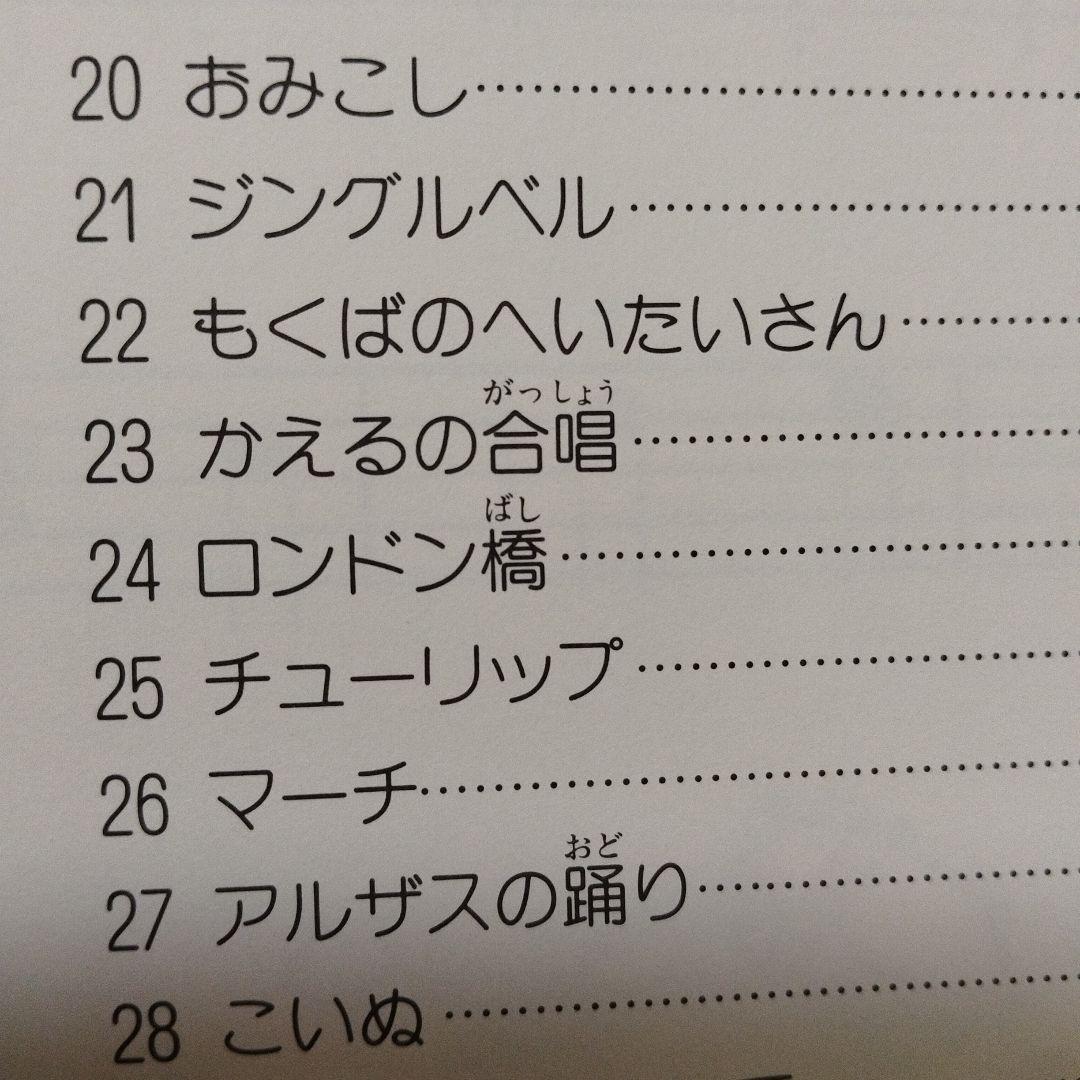 20 おみこし……………………
21 ジングルベル……………………
22 もくばのへいたいさん……………………
がっしょう
23 かえるの合唱……………………
ばし
24 ロンドン橋……………………
25 チューリップ……………………
26 マーチ……………………
おど
27 アルザスの踊り……………………
28 こいぬ……………………